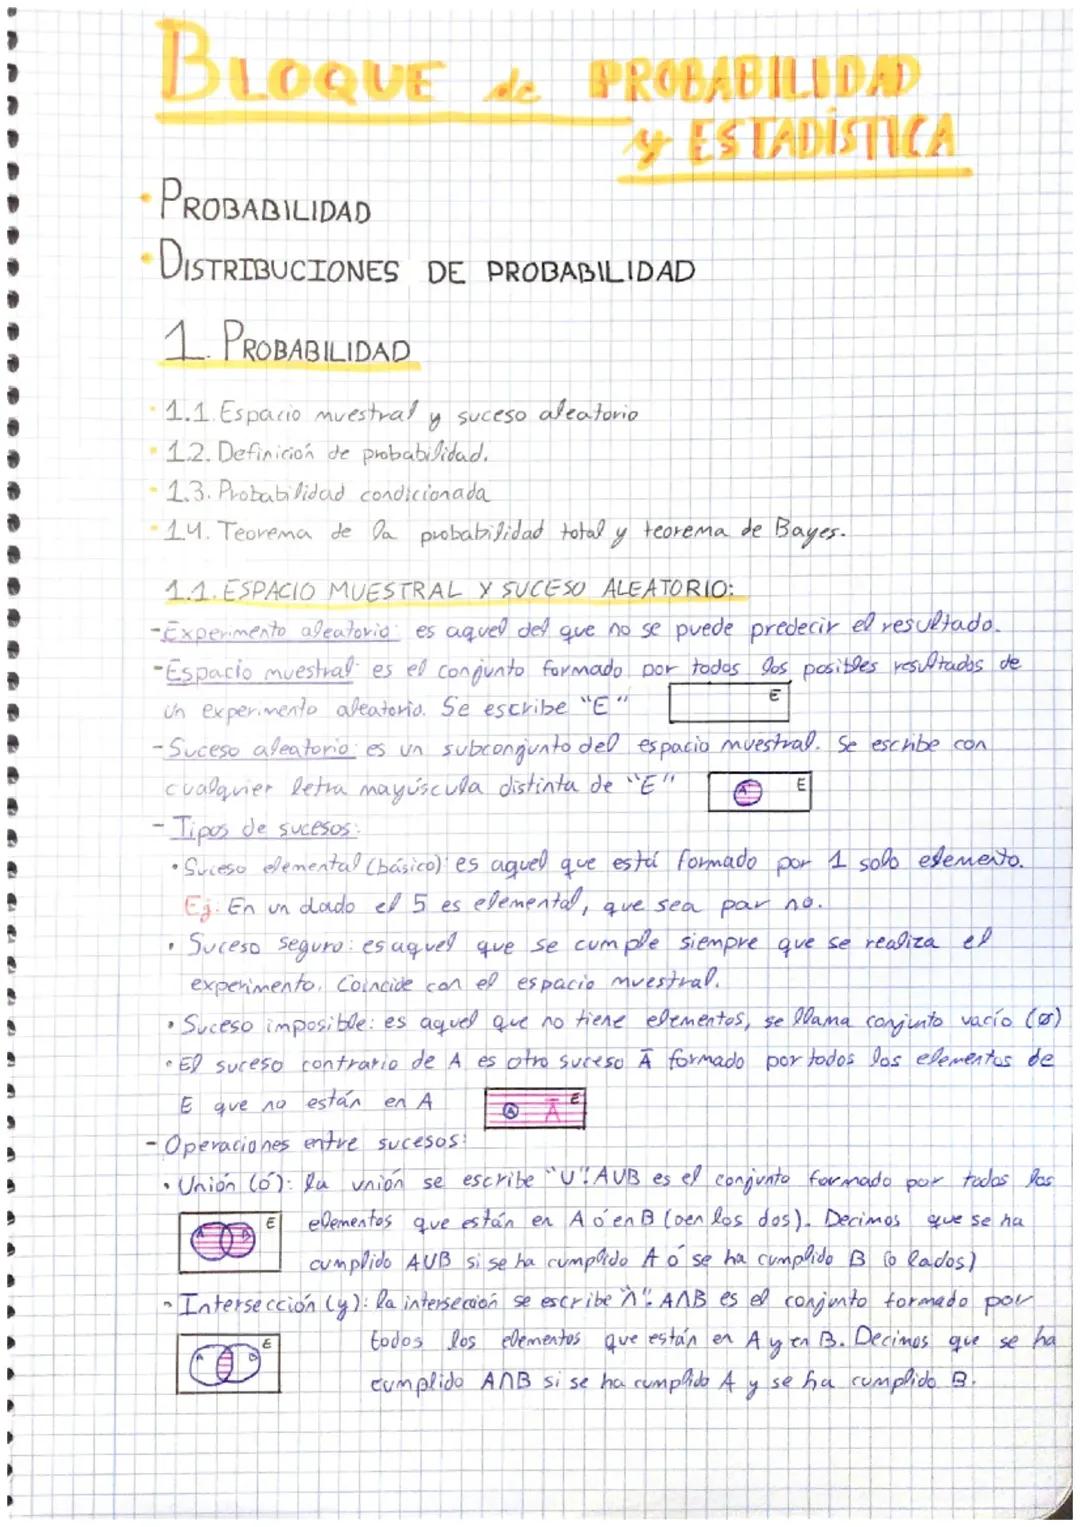 BLOQUE de PROBABILIDAD
y ESTADÍSTICA
· PROBABILIDAD
· DISTRIBUCIONES DE PROBABILIDAD
1. PROBABILIDAD
· 1.1. Espacio muestral y suceso aleatorio
· 1.2. Definición de probabilidad.
· 1.3. Probabilidad condicionada
· 1.4. Teorema de la probabilidad total y teorema de Bayes.
1.1. ESPACIO MUESTRAL Y SUCESO ALEATORIO:
- Experimento aleatorio: es aquel del que no se puede predecir el resultado.
- Espacio muestral: es el conjunto formado por todos los posibles resultados de
un experimento aleatorio. Se escribe "E"
E
- Suceso aleatorio: es un subconjunto del espacio muestral. Se escribe con
cualquier letra mayúscula distinta de "E"
A E
- Tipos de sucesos:
· Suceso elemental (básico): es aquel que está formado por 1 solo elemento.
Ej. En un dado el 5 es elemental, que sea par no.
· Suceso seguro: es aquel que se cumple siempre que se realiza el
experimento. Coincide con el espacio muestral.
· Suceso imposible: es aquel que no tiene elementos, se llama conjunto vacío (ø)
· El suceso contrario de A es otro suceso Ā formado por todos los elementos de
E que no están en A
A Ā E
- Operaciones entre sucesos:
· Unión (ó): la unión se escribe "U". AUB es el conjunto formado por todos los
elementos que están en A ó en B (o en los dos). Decimos que se ha
A B E
cumplido AUB si se ha cumplido A ó se ha cumplido B (o lados)
· Intersección (y): la intersección se escribe "∩". A∩B es el conjunto formado por
todos los elementos que están en A y en B. Decimos que se ha
A B E
cumplido A∩B si se ha cumplido A y se ha cumplido B.